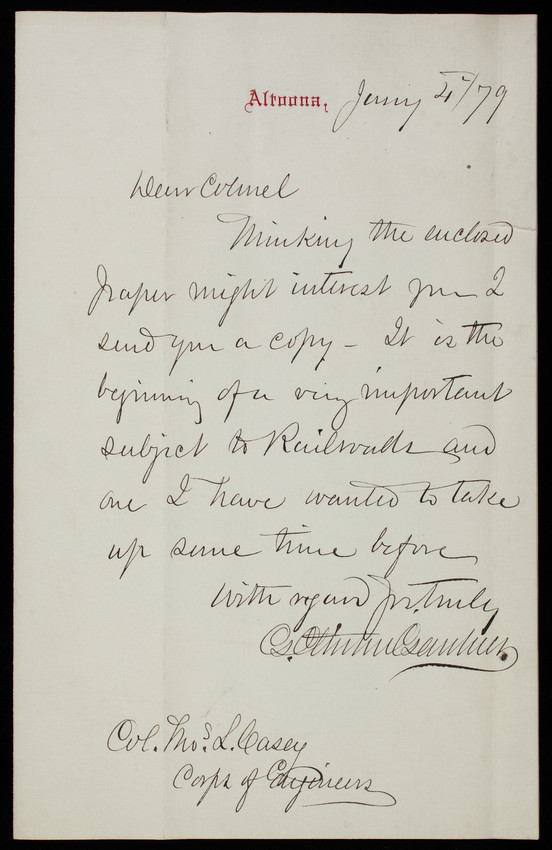 Altoona, Jany 4th/79
Dear Colonel
Thinking the enclosed
paper might interest you I
send you a copy – It is the
beginning of a very important
subject to Railroads and
one I have wanted to take
up some time before
With regard Yrs. truly
G. Clinton Gardner.
Col. Thos. L. Casey
Corps of Engineers